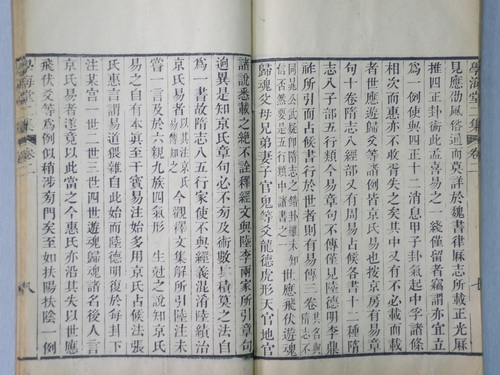 學海堂集 卷二 七
見應劭風俗通而莫詳於魏書律厤志所載正光厤
推四正卦術此孟喜易之一綫僅留者竊謂亦宜立
為一例使與四正十二消息甲子卦氣起中孚諸條
相次而惠亦不收胥失之矣其中又有不必載而載
者世應遊歸爻等諸例皆京氏易也按京房有易章
句十卷隋志入經部又有周易占候各書十二種隋
志入子部五行類今易章句不傳僅見陸德明李鼎
祚所引而占候書行於世者則有易傳三卷隋志其名與
同晁公武疑卽隋志之錯卦雖未知
信否然要是五行類中諸書之一世應飛伏遊魂
歸魂父母兄弟妻子官鬼等爻龍德虎形天官地官
諸說悉載之絕不詮釋經文與陸李兩家所引章句
逈異是知京氏章句必不芴及術數其積算之法自
為一書故隋志入五行家使不與經義混淆陸績治
京氏易者以其注京氏易傳知之今觀釋文集解所引陸注未
嘗一言及於六親九族四氣形生尅之說知京氏
易之自有本眞矣至干寶易注始多用京氏占候法張
氏惠言謂易道猥雜自此始而陸德明復於每卦下
注某宮一世二世三世四世遊魂歸魂諸名後人言
京氏易者遂竟以此當之今惠氏亦沿其失以世應
飛伏爻等爲例似稍涉芴門矣至如扶陽扶陰一例
學海堂集 卷二 八